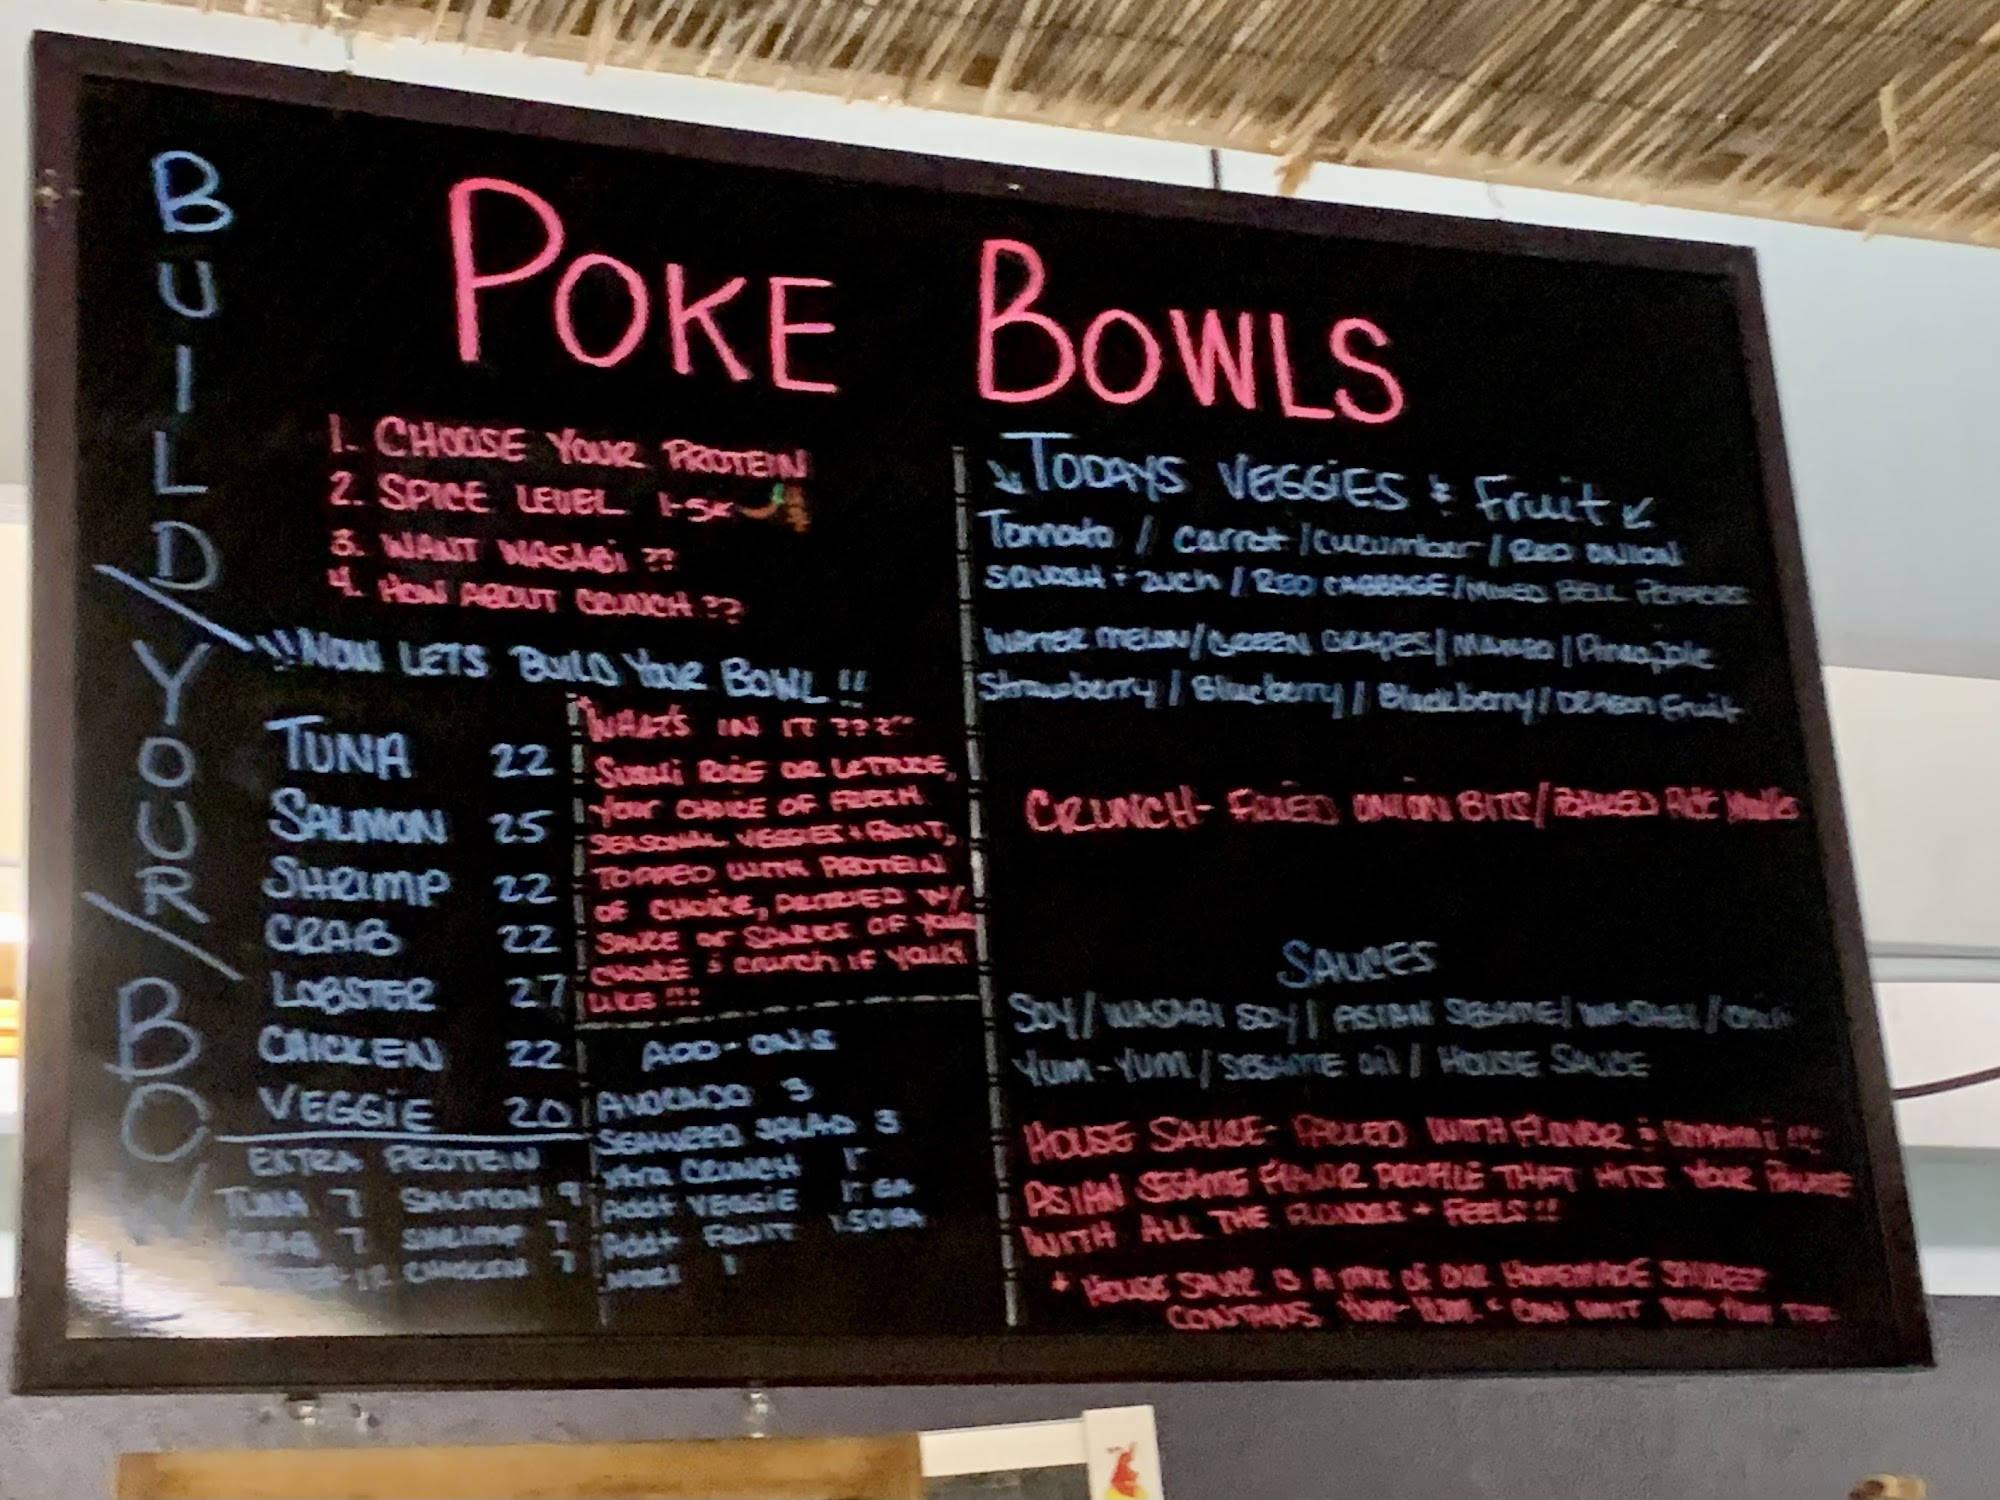 BUILD / YOUR / BOW
POKE BOWLS
1. CHOOSE YOUR PROTEIN
2. SPICE LEVEL 1-5
3. WANT WASABI ??
4. HOW ABOUT CRUNCH ??
!! NOW LETS BUILD YOUR BOWL !!
TUNA 22
SALMON 25
SHRIMP 22
CRAB 22
LOBSTER 27
CHICKEN 22
VEGGIE 20
EXTRA PROTEIN
TUNA 7 SALMON 9
7 SHRIMP 7
12 CHICKEN 7
WHAT'S IN IT ???
SUSHI RICE OR LETTUCE,
YOUR CHOICE OF FRESH
SEASONAL VEGGIES + FRUIT,
TOPPED WITH PROTEIN
OF CHOICE, W/
SAUCE OR SAUCES OF YOUR
CHOICE & CRUNCH IF YOU
LIKE !!!
ADD-ONS
AVOCADO 3
SEAWEED SALAD 3
XTRA CRUNCH 1
Add+ VEGGIE 1 EA
Add+ FRUIT 1.50 EA
NORI 1
↘ TODAYS VEGGIES & Fruit ↙
Tomato / Carrot / Cucumber / RED ONION
SQUASH + ZUCH / RED CABBAGE / MIXED BELL PEPPERS
WATERMELON / GREEN GRAPES / MANGO / Pineapple
Strawberry / Blueberry / Blackberry / DRAGON Fruit
CRUNCH - FRIED ONION BITS / BAKED RICE
SAUCES
SOY / WASABI SOY / ASIAN SESAME / WASABI /
YUM-YUM / SESAME OIL / HOUSE SAUCE
HOUSE SAUCE - PACKED WITH FLAVOR & UMAMI !!!
ASIAN SESAME FLAVOR PROFILE THAT HITS YOUR PALATE
WITH ALL THE FLAVORS + FEELS !!
* HOUSE SAUCE IS A MIX OF OUR HOMEMADE SAUCES
CONTAINS YUM-YUM * CAN OMIT YUM-YUM